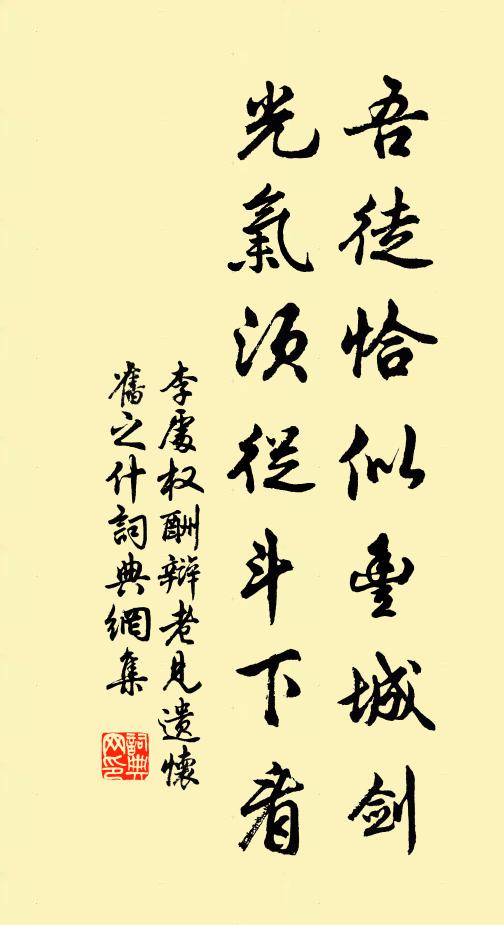 吾徒恰似豐城劍
光氣須從斗下看
李處权酬辯老見遺懷
舊之什詞典網集
詞典網印